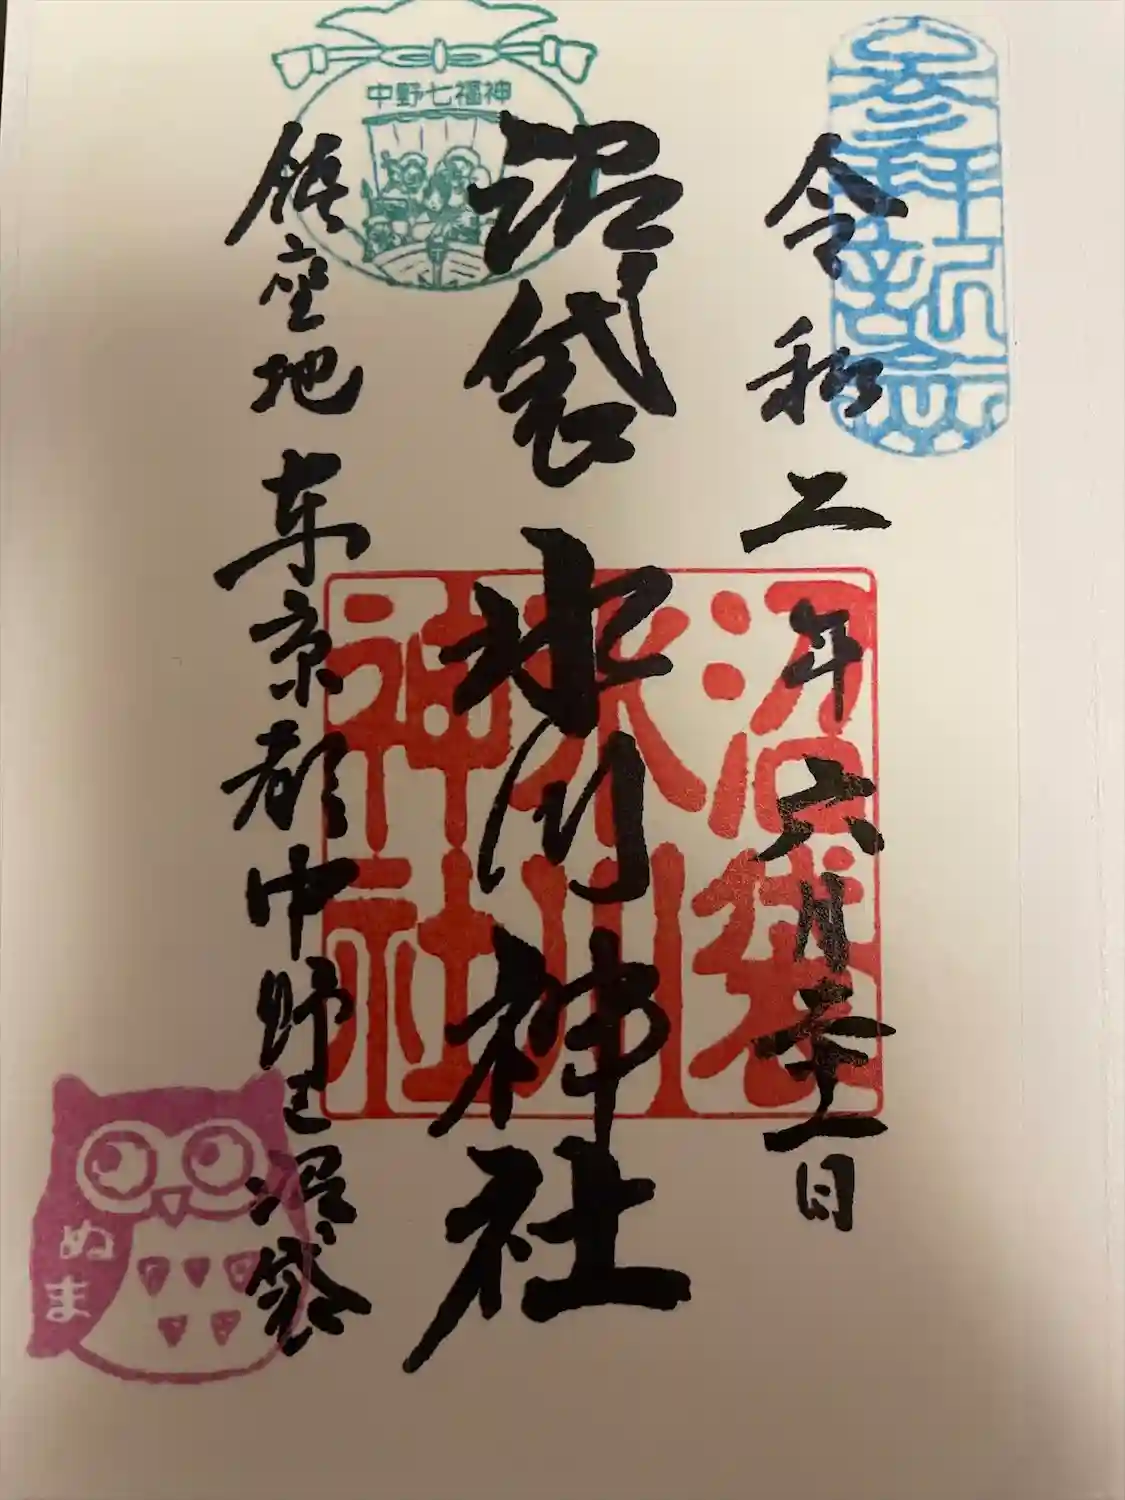 令和二年六月二十一日
沼袋氷川神社
鎮座地 東京都中野区沼袋
中野七福神
沼袋
氷川
神社
ぬま